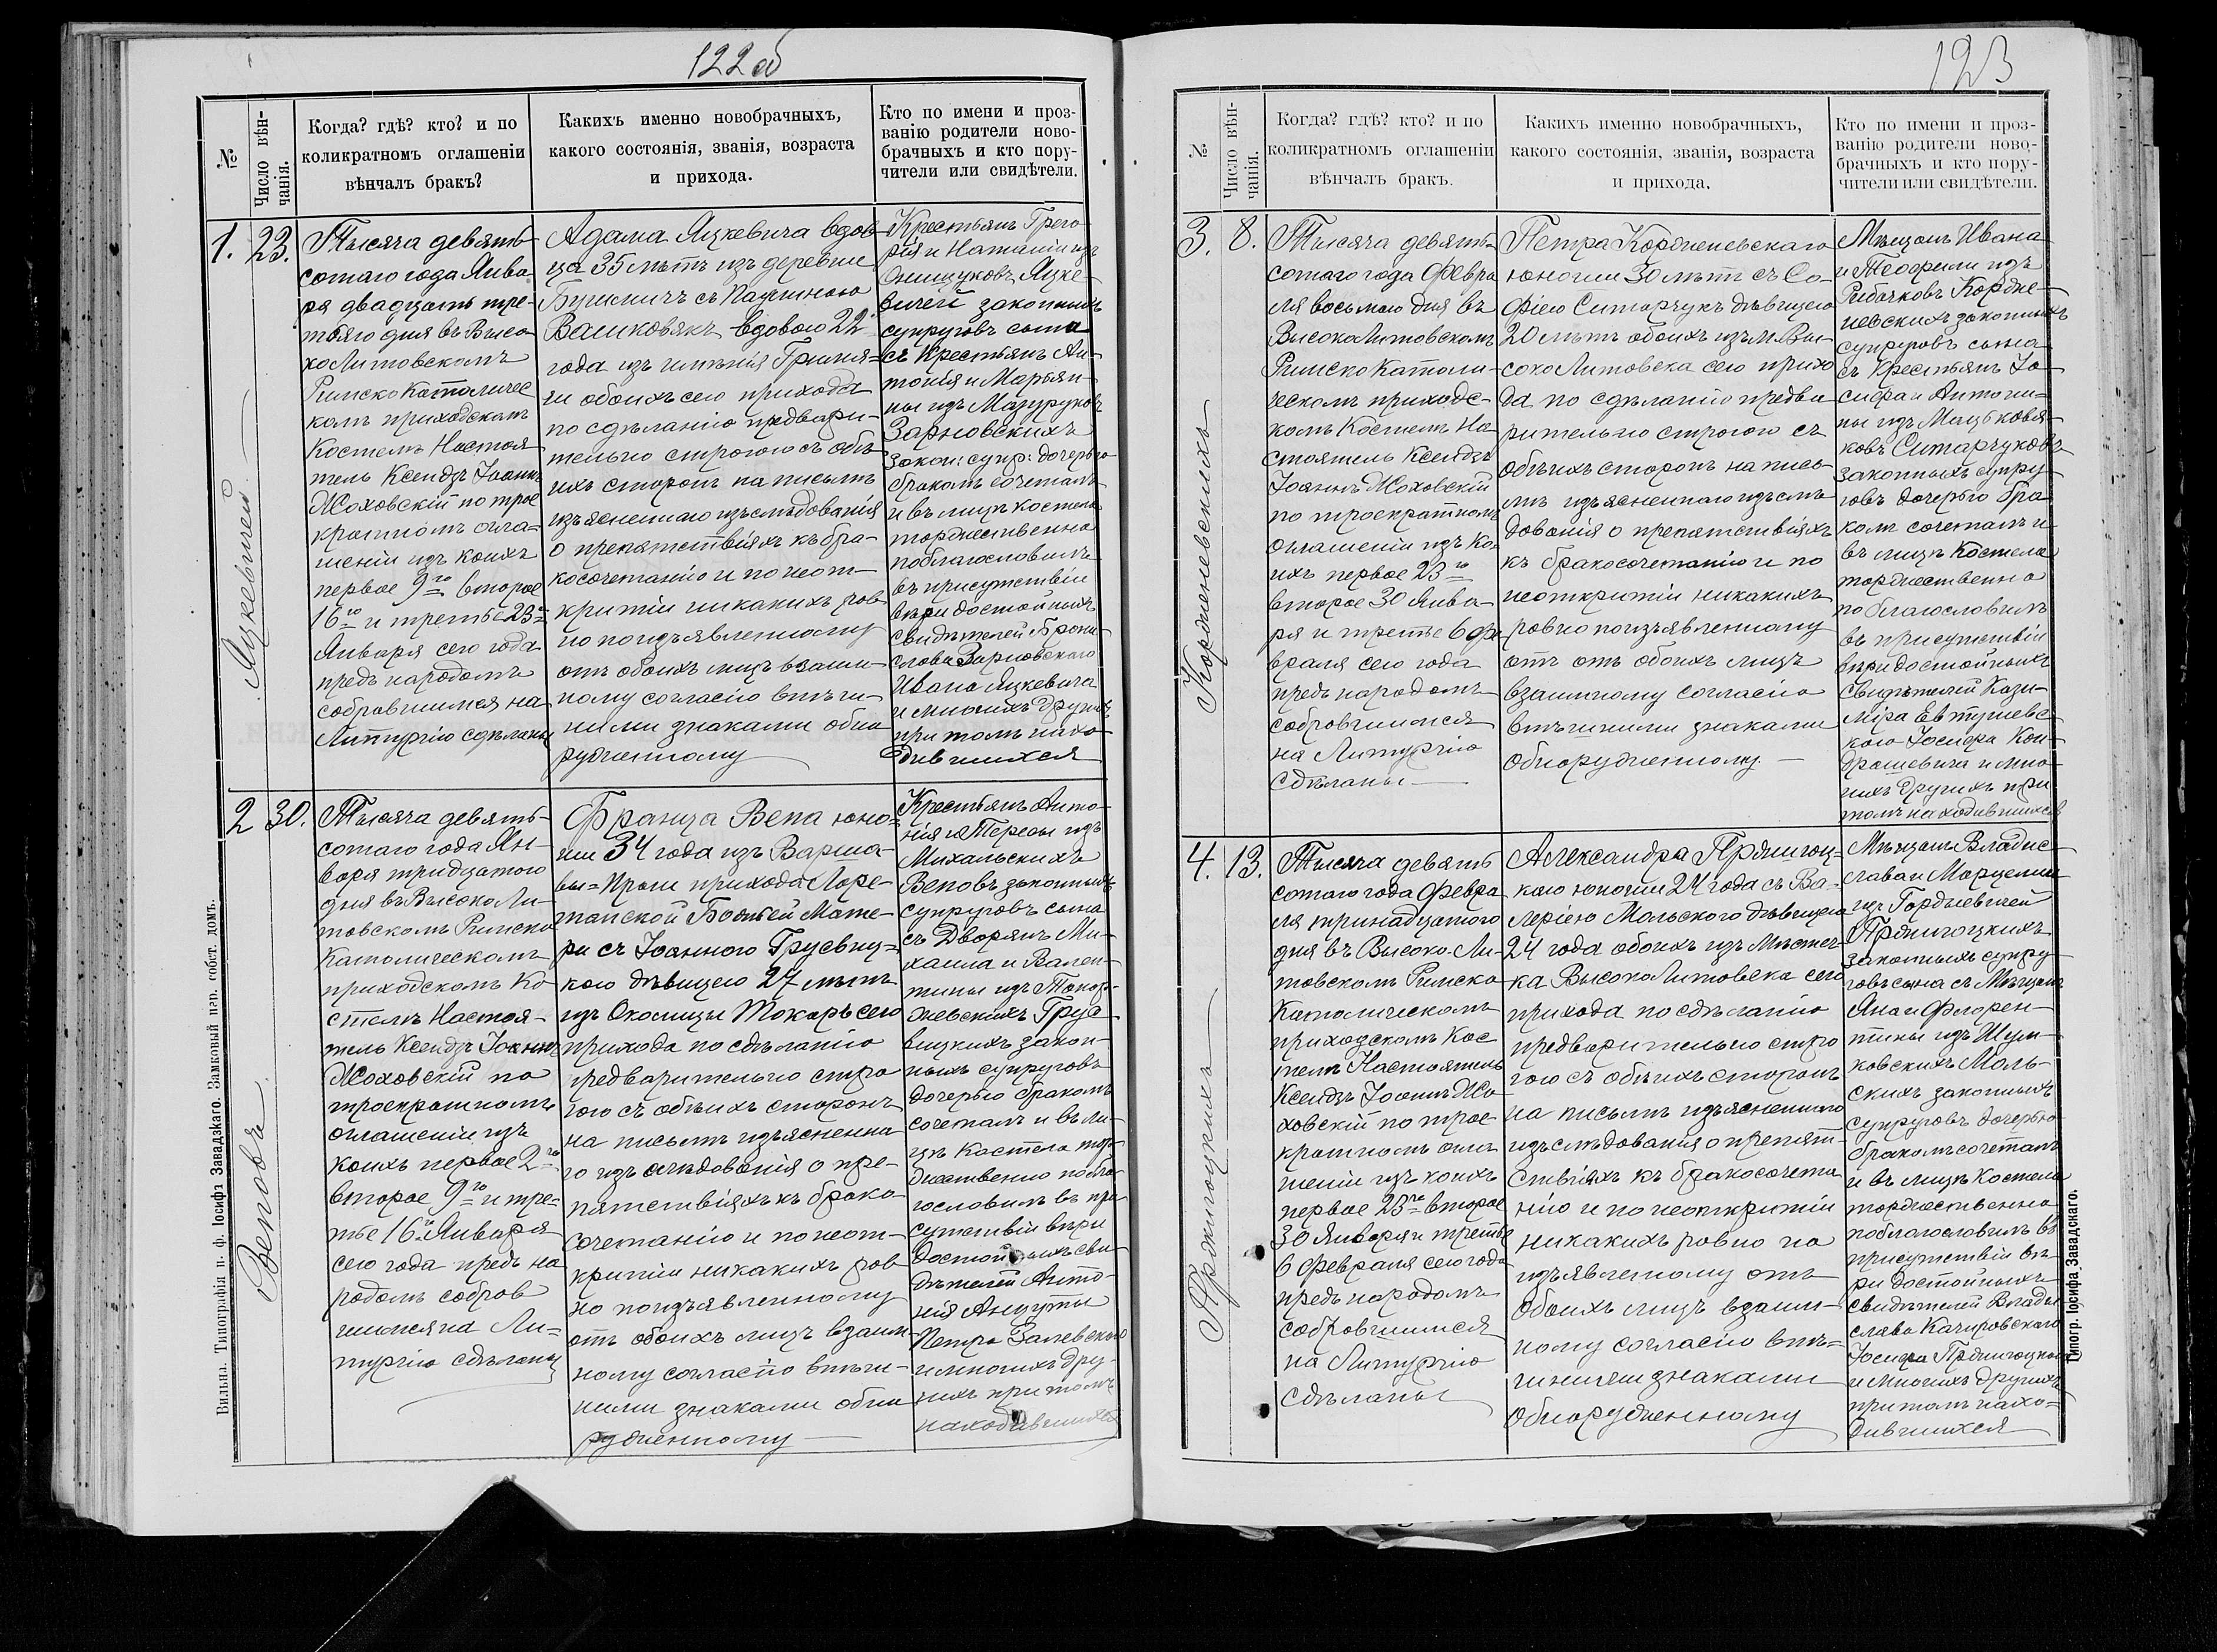 122об
№
Число вѣн-
чанія.
Когда? гдѣ? кто? и по
коликратномъ оглашеніи
вѣнчалъ бракъ?
Какихъ именно новобрачныхъ,
какого состоянія, званія, возраста
и прихода.
Кто по имени и проз-
ванію родители ново-
брачныхъ и кто пору-
чители или свидѣтели.
1.
23.
Яцкевичей
Тысяча девять-
сотаго года Янва-
ря двадцать тре-
тьяго дня въ Высо-
ко Литовскомъ
Римско Католичес
комъ приходскомъ
Костелѣ Настоя
тель Ксендзъ Іоаннъ
Жоховскій по трое
кратномъ огла-
шеніи изъ коихъ
первое 9го второе
16го и третье 23го
Января сего года
предъ народомъ
собравшимся на
Литургію сдѣланы
Адама Яцкевича вдов
ца 35 лѣтъ изъ деревни
съ Паулиною
Вашковякъ вдовою 22
года изъ имѣнія Гриня-
ги обоихъ сего прихода
по сдѣланію предвари-
тельно строгою съ обѣ
ихъ сторонъ на письмѣ
изъясненнаго изслѣдованія
о препятствіяхъ къ бра-
косочетанію и по неот-
крытіи никакихъ ров
но по изъявленному
отъ обоихъ лицъ взаим-
ному согласію внѣш-
ними знаками обна
руженному
Крестьянъ Грего
рія и Наталіи изъ
Онищуковъ Яцке-
вичей законныхъ
супруговъ сына
съ Крестьянъ Ан-
тонія и Марьян-
ны изъ Мазуруковъ
Зарновскихъ
закон: супр: дочерью
бракомъ сочеталъ
и въ лицѣ костела
торжественно
поблагословилъ
въ присутствіи
вѣри достойныхъ
свидѣтелей Брони
слава Зарновскаго
Ивана Яцкевича
и многихъ другихъ
при томъ нахо
дившихся
2
30.
Веповъ
Тысяча девять-
сотаго года Ян-
варя тридцатого
дня въ Высоко Ли
товскомъ Римско
Католическомъ
приходскомъ Ко
стелѣ Настоя-
тель Ксендзъ Іоаннъ
Жоховскій по
троекратномъ
оглашеніи изъ
коихъ первое 2го
второе 9го и тре-
тье 16го Января
сего года предъ на
родомъ собрав
шимся на Ли-
тургію сдѣланы
Франца Вепа юно-
ши 34 года изъ Варша-
вы-Праги прихода Лоре-
танской Божьей Мате-
ри съ Іоанною Грусвиц-
кою дѣвицею 27 лѣтъ
изъ Околицы Токарь сего
прихода по сдѣланію
предварительно стро
гою съ обѣихъ сторонъ
на письмѣ изъясненна
го изъ слѣдованія о пре-
пятствіяхъ къ брако-
сочетанію и по неот-
крытіи никакихъ ров
но по изъявленному
отъ обоихъ лицъ взаим-
ному согласію внѣш-
ними знаками обна
руженному
Крестьянъ Анто-
нія и Терезы изъ
Михальскихъ
Веповъ законныхъ
супруговъ сына
съ Дворянъ Ми-
хаила и Вален-
тины изъ
Грус
вицкихъ закон-
ныхъ супруговъ
дочерью бракомъ
сочеталъ и въ ли-
цѣ Костела тор-
жественно побла-
гословилъ въ при
сутствіи вѣри
достойныхъ сви-
дѣтелей Анто-
нія Анцуты
Петра
и многихъ дру-
гихъ при томъ
находившихся
Вильна. Типографія п. ф. Іосифа Завадзкаго. Замковый пер. собст. домъ.
123
№
Число вѣн-
чанія.
Когда? гдѣ? кто? и по
коликратномъ оглашеніи
вѣнчалъ бракъ.
Какихъ именно новобрачныхъ,
какого состоянія, званія, возраста
и прихода.
Кто по имени и проз-
ванію родители ново-
брачныхъ и кто пору-
чители или свидѣтели.
3.
8.
Корженевскихъ
Тысяча девять-
сотаго года Февра
ля восьмого дня въ
Высоко Литовскомъ
Римско Католи-
ческомъ приходс-
комъ Костелѣ На
стоятель Ксендзъ
Іоаннъ Жоховскій
по троекратномъ
оглашеніи изъ ко-
ихъ первое 23го
второе 30 Янва-
ря и третье 6 Фе
враля сего года
предъ народомъ
собравшимся
на Литургію
сдѣланы
Петра Корженевскаго
юноши 30 лѣтъ съ Со-
фіею Ситарчукъ дѣвицею
20 лѣтъ обоихъ изъ м. Вы-
соко Литовска сего прихо
да по сдѣланію предва
рительно строгою съ
обѣихъ сторонъ на пись
мѣ изъясненнаго изслѣ
дованія о препятствіяхъ
къ бракосочетанію и по
неоткрытіи никакихъ
ровно по изъявленному
отъ отъ обоихъ лицъ
взаимному согласію
внѣшними знаками
обнаруженному
Мѣщанъ Ивана
и Теофили изъ
Рыбачковъ Корже-
невскихъ законныхъ
супруговъ сына
съ Крестьянъ Іо-
сифа и Антони-
ны изъ Мицьковя-
ковъ Ситарчуковъ
законныхъ супру-
говъ дочерью бра
комъ сочеталъ и
въ лицѣ Костела
торжественно
поблагословилъ
въ присутствіи
вѣри достойныхъ
Свидѣтелей Кази-
міра
каго Іосифа Кон-
драшевича и мно-
гихъ другихъ при
томъ находившихся
4.
13.
Пржигоцкихъ
Тысяча девять
сотаго года Февра
ля тринадцатого
дня въ Высоко-Ли
товскомъ Римско
Католическомъ
приходскомъ Кос
телѣ Настоятель
Ксендзъ Іоаннъ Жо-
ховскій по трое-
кратномъ огла
шеніи изъ коихъ
первое 23го второе
30 Января и третье
6 Февраля сего года
предъ народомъ
собравшимся
на Литургію
сдѣланы
Александра Пржигоц-
каго юноши 24 года съ Ва-
леріею Мольского дѣвицею
24 года обоихъ изъ Мѣстеч-
ка Высоко Литовска сего
прихода по сдѣланію
предварительно стро
гою съ обѣихъ сторонъ
на письмѣ изъясненного
изъ слѣдованія о препят-
ствіяхъ къ бракосочета
нію и по неоткрытіи
никакихъ ровно по
изъявленному отъ
обоихъ лицъ взаим-
ному согласію внѣ-
шними знаками
обнаруженному
Мѣщанъ Владис-
лава и Марцелины
изъ Гордыевичей
Пржигоцкихъ
законныхъ супру-
говъ сына съ Мѣщанъ
Яна и Флорен-
тины изъ Шум-
ковскихъ Моль-
скихъ законныхъ
супруговъ дочерью
бракомъ сочеталъ
и въ лицѣ Костела
торжественно
поблагословилъ въ
присутствіи вѣ
ри достойныхъ
свидѣтелей Влади
слава Качаровскаго
Іосифа Пржигоцкаго
и многихъ другихъ
при томъ нахо-
дившихся
Типогр. Іосифа Завадскаго.